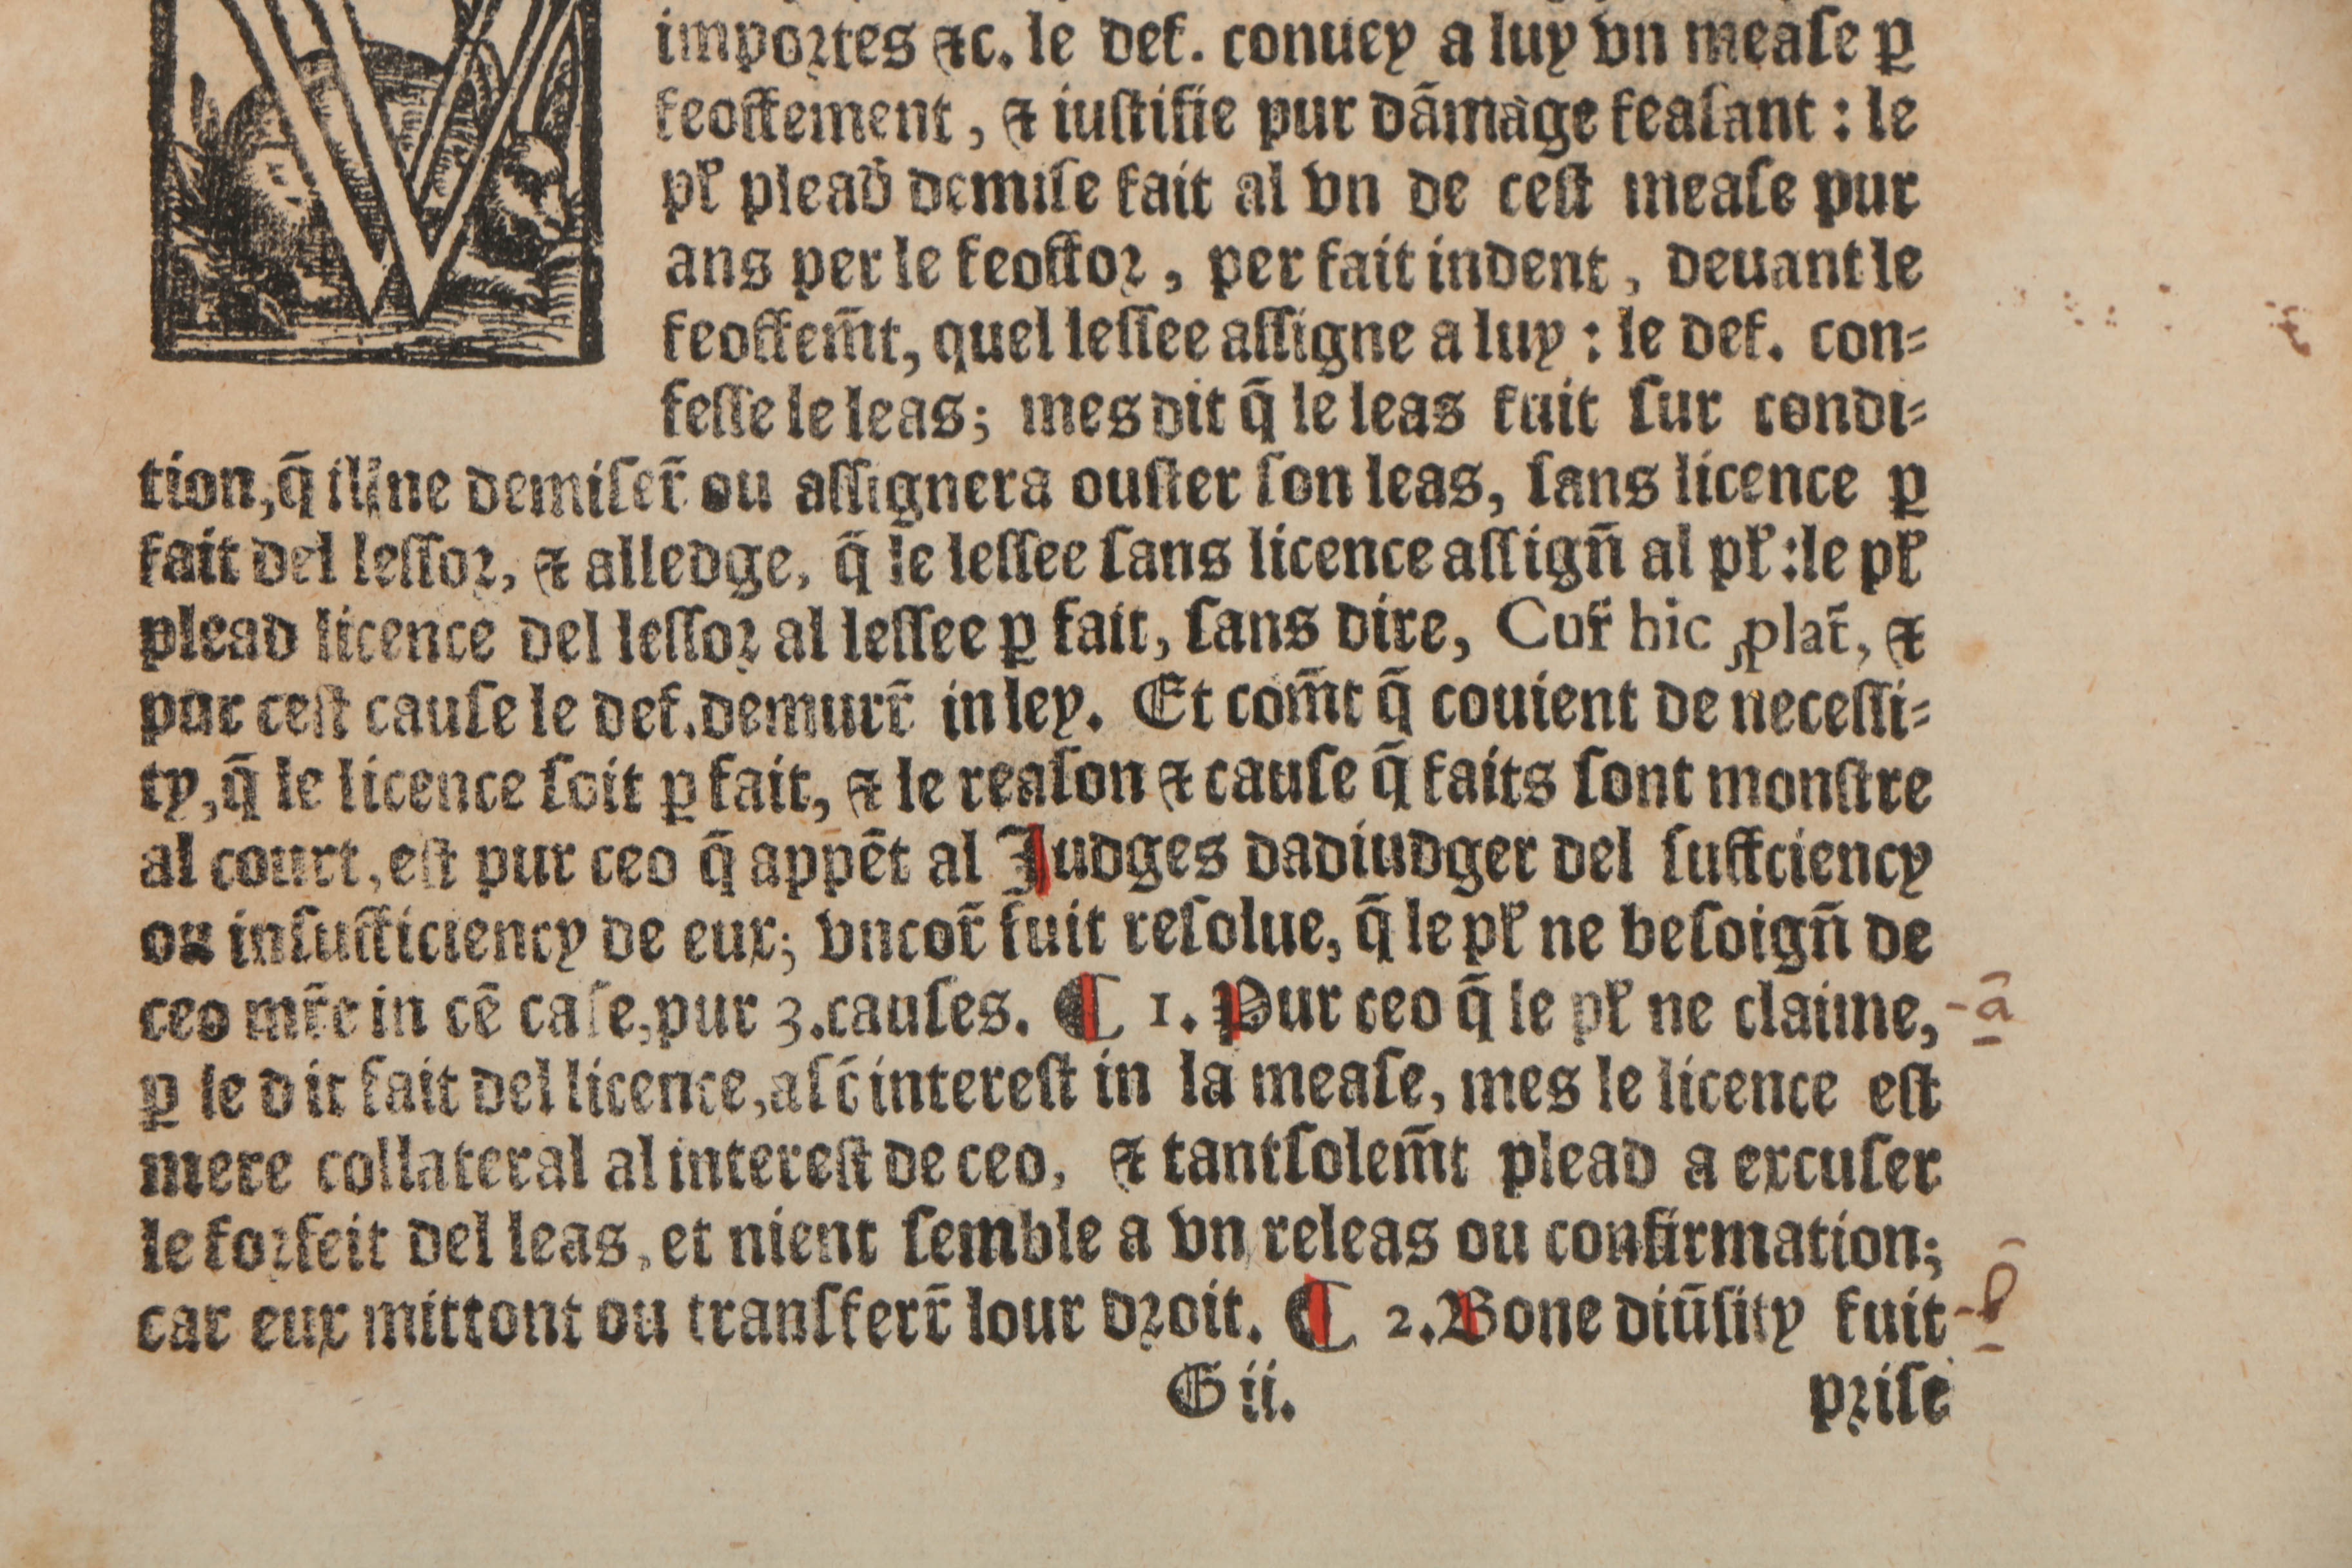 importes &c. le def. conuey a luy vn mease ꝑ
feoffement, & iustifie pur dāmage feasant : le
pł pleaď demise fait al vn de cest mease pur
ans per le feoffor, per fait indent, deuant le
feoffem̄t, quel lessee assigne a luy : le def. con-
fesse le leas; mes dit q̄ le leas fuit sur condi-
tion, q̄ il ne demiser̄ ou assignera ouster son leas, sans licence ꝑ
fait del lessor, & alledge, q̄ le lessee sans licence assign̄ al pł : le pł
plead licence del lessor al lessee ꝑ fait, sans dire, Cur̄ hic ꝓlat̄, &
pur cest cause le def. demurr̄ in ley. Et com̄t q̄ couient de necessi-
ty, q̄ le licence soit ꝑ fait, & le reason & cause q̄ faits sont monstre
al court, est pur ceo q̄ appēt al Iudges dadiudger del suffciency
ou insufficiency de eux; vncor̄ fuit resolue, q̄ le pł ne besoign̄ de
ceo mr̄e in cē case, pur 3. causes. ¶ 1. Pur ceo q̄ le pł ne claime, -ā
ꝑ le dit fait del licence, asc̄ interest in la mease, mes le licence est
mere collateral al interest de ceo, & tantsolem̄t plead a excuser
le forfeit del leas, et nient semble a vn releas ou confirmation;
car eux mittont ou transferr̄ lour droit. ¶ 2. Bone diūsity fuit -b̄
G ii. prise